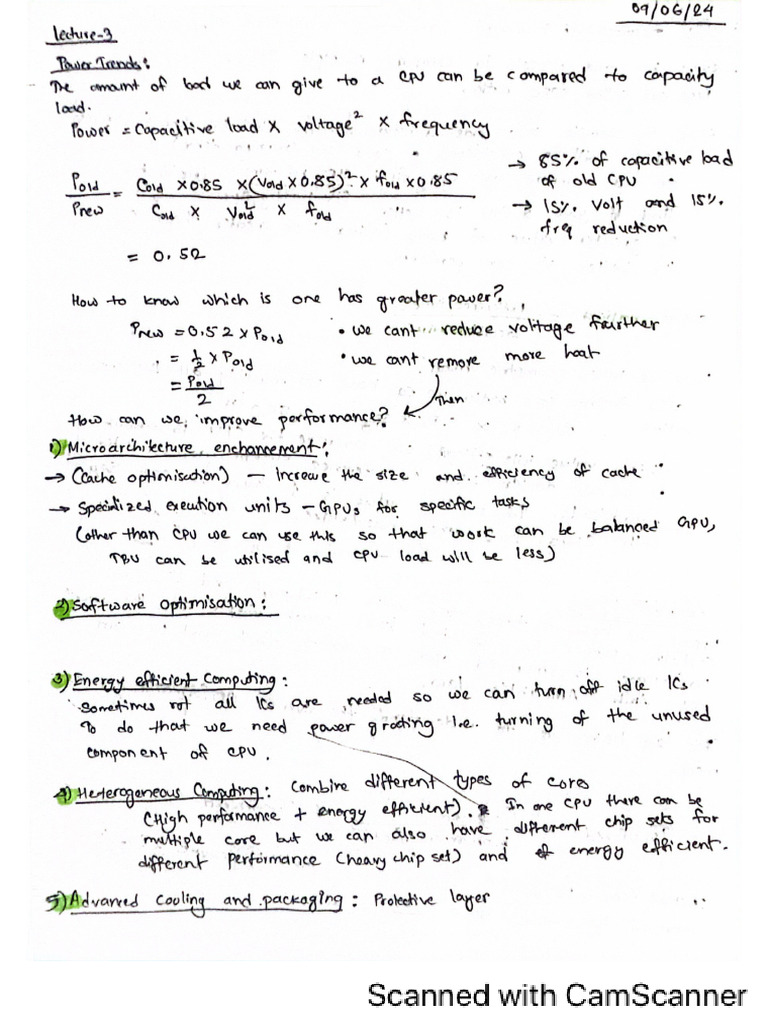 09/06/24
Lecture-3
Power Trends:
The amount of load we can give to a CPU can be compared to capacity
load.
Power = Capacitive load × voltage² × frequency
→ 85% of capacitive load
of old CPU
→ 15% volt and 15%
freq reduction
Pold / Pnew = Cold × 0.85 × (Vold × 0.85)² × fold × 0.85 / Cold × Vold² × fold
= 0.52
How to know which is one has greater power?
Pnew = 0.52 × Pold
= 1/2 × Pold
= Pold / 2
• we cant reduce voltage further
• we cant remove more heat
Then
How can we improve performance?
1) Microarchitecture enchancement:
→ (Cache optimisation) – Increase the size and efficiency of cache
→ Specialized execution units – GPUs for specific tasks
(other than CPU we can use this so that work can be balanced GPU,
TBU can be utilised and CPU load will be less)
2) Software Optimisation:
3) Energy efficient Computing:
Sometimes not all ICs are needed so we can turn off idle ICs
To do that we need power grating i.e. turning of the unused
component of CPU.
4) Heterogeneous Computing: Combine different types of cores
(High performance + energy efficient). In one CPU there can be
multiple core but we can also have different chip sets for
different performance (heavy chip set) and of energy efficient.
5) Advanced Cooling and packaging: Protective layer
Scanned with CamScanner